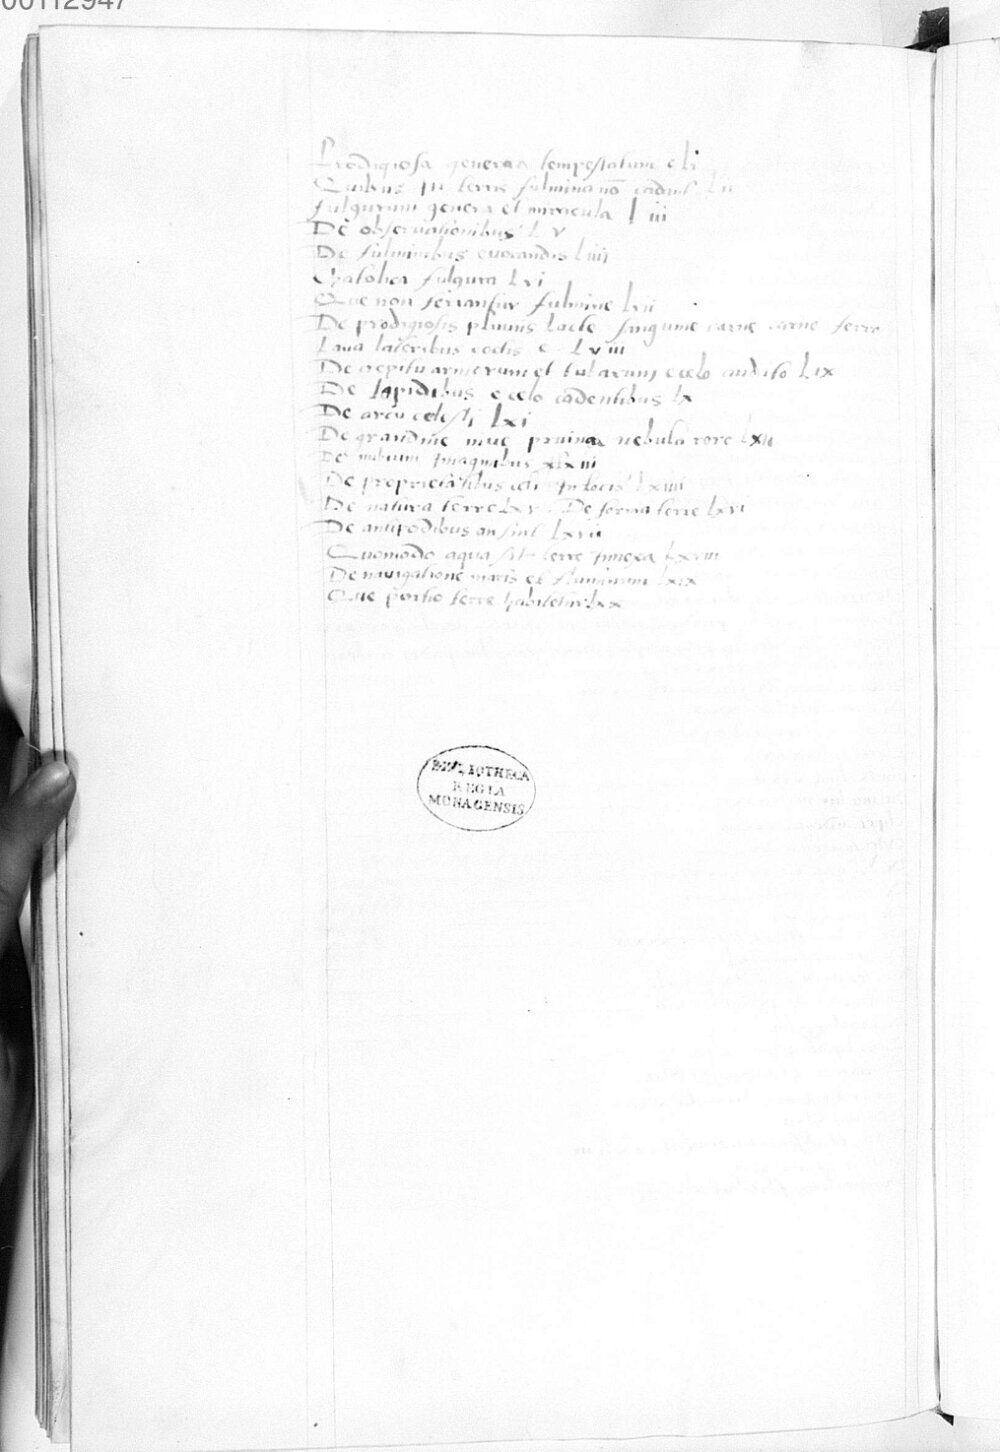 00112947
Prodigiosa genera tempestatum e li
Quibus in terris fulmina nō cadunt lii
fulgurum genera et miracula l iii
De observationibus l v
De fulminibus evocandis liiij
Chatolica fulgura lvi
Que non feriantur fulmine lvii
De prodigiosis pluviis lacte sanguine carne carne ferro
Lana lateribus coctis e Lviii
De crepitu armorum et tubarum e celo audito Lix
De lapidibus e celo cadentibus lx
De arcu celesti lxi
De grandine nive pruina nebula rore lxii
De nubium imaginibus lxiii
De proprietatibus celi in locis lxiiii
De natura terre lxv De forma terre lxvi
De antipodibus an sint lxvii
Quomodo aqua sit terre innexa lxviii
De navigatione maris et fluminum lxix
Que portio terre habitetur lxx
BIBLIOTHECA
REGIA
MONACENSIS